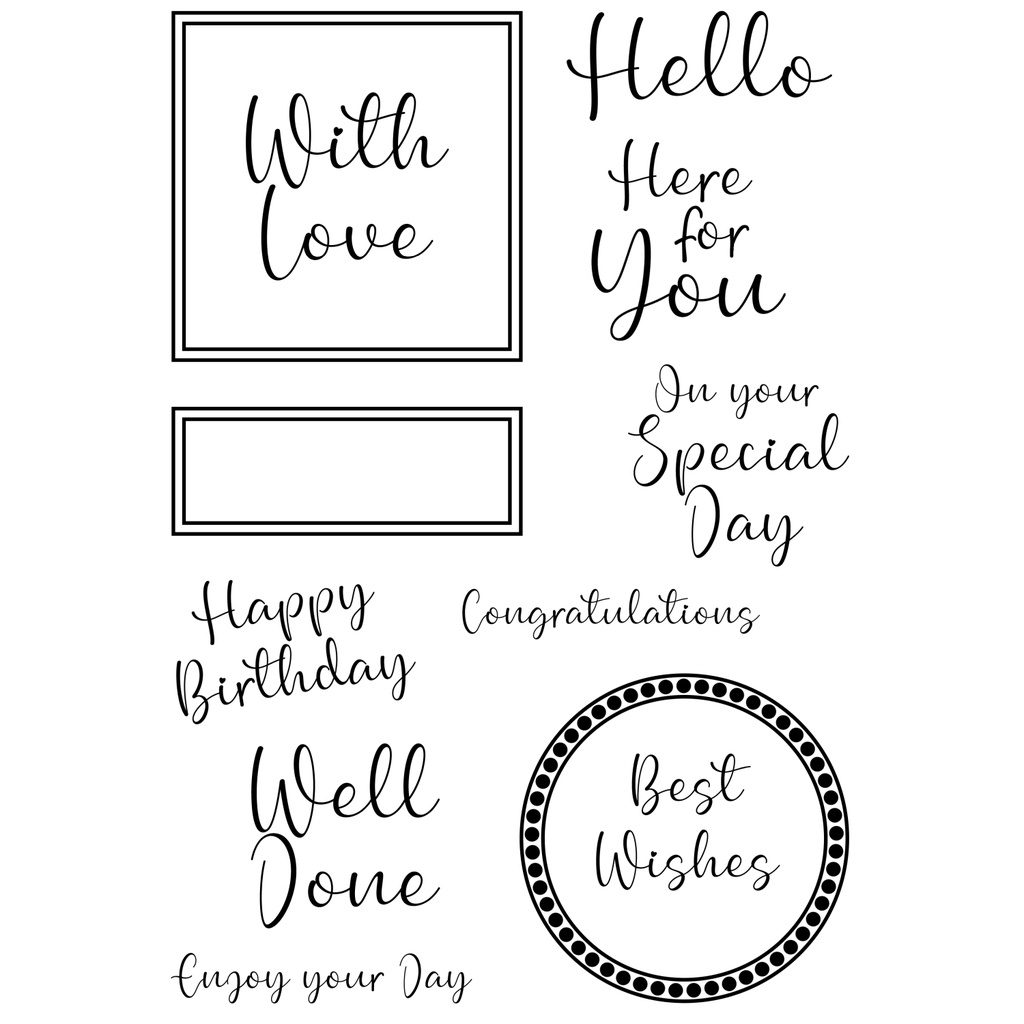 With
Love
Hello
Here
for
You
On your
Special
Day
Happy
Birthday
Congratulations
Well
Done
Best
Wishes
Enjoy your Day